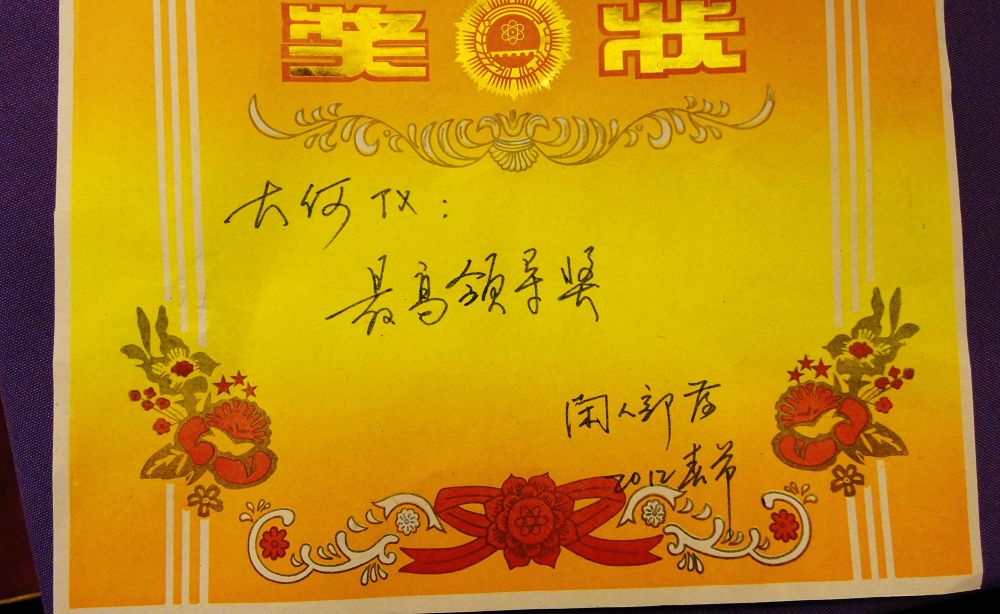 奖状
大何仪：
最高领导奖
闲人部落
2012春节